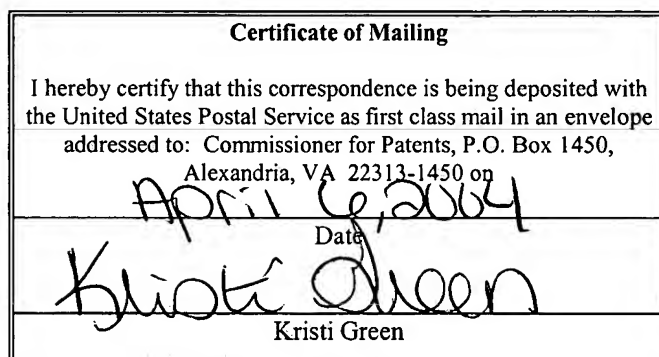 Certificate of Mailing
I hereby certify that this correspondence is being deposited with
the United States Postal Service as first class mail in an envelope
addressed to: Commissioner for Patents, P.O. Box 1450,
Alexandria, VA 22313-1450 on
April 6, 2004
Date
Kristi Green
Kristi Green